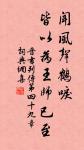 聞風聲鶴唳
皆以為王師已至
晉書列傳第四十九章
詞典網集